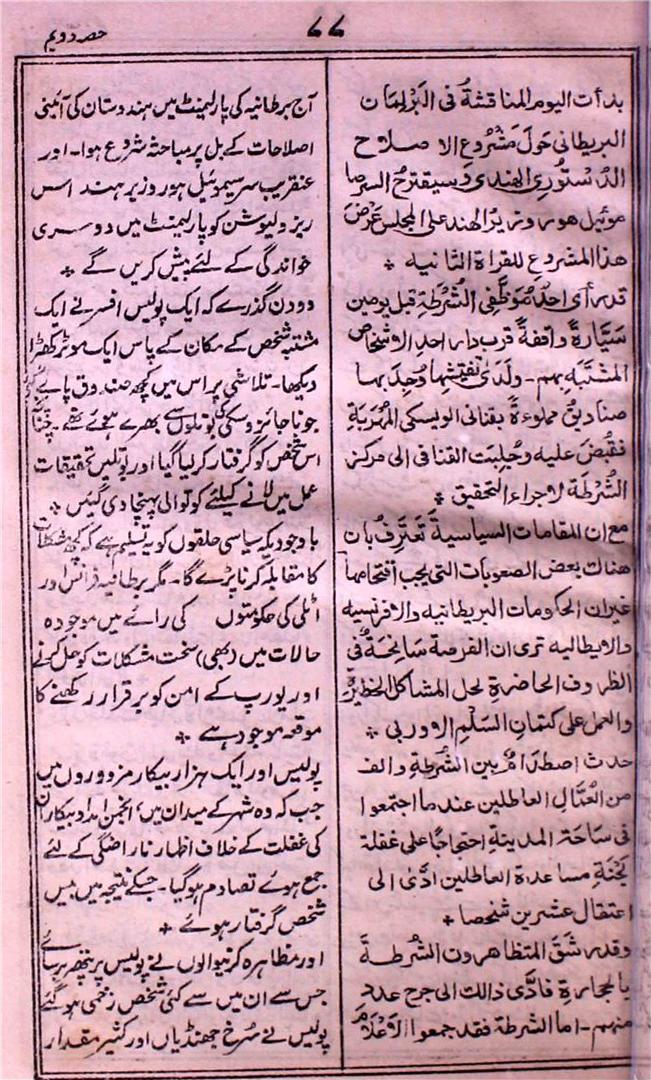 حصہ دویم
۷۷
بدأت اليوم المناقشةُ فى البَرْلمان
البريطانى حَولَ مَشْرُوع الاصلاح
الدُستُورِى الهِندى وَسيقترحُ السرصا
موئيل هور وزيرُ الهند على المجلس عَرضَ
هذا المشروع للقراة الثانيه *
قد رأى احدُ مُوَظَّفِى الشُرطَةِ قبل يومين
سَيَّارةً واقفةً قرب دار احدِ الاشخاص
المشتَبَهِ بهم - ولدىٰ تفتيشِها وُجِدَ بها
صناديقُ مملوءَةً بقنانى الويسكى المُهَرَّبَةِ
فقُبِضَ عليه وجُلِبَت القنانى الى مركز
الشُرطَة لاجراء التحقيق *
مع ان المقامات السياسيةَ تَعتَرِفُ بان
هناك بعض الصعوبات التى يجب اقتحامها
غيران الحكومات البريطانيه والافرنسيه
والايطاليه ترى ان الفرصة سَانِحَةٌ فى
الظروف الحاضرة لحل المشاكل الخطيرة
والعمل على كتمان السَلْمِ الاوربى *
حدث اصطدامٌ بين الشُرطةِ والف
من العُمّالِ العاطلين عند ما اجتمعوا
فى ساحَةِ المدينةِ احتجاجًا على غفلة
لَجْنَةِ مساعدة العاطلين ادّىٰ الى
اعتقال عشرين شخصا *
وقد رشَقَ المتظاهرون الشُرطةَ
بالحجارةِ فادّى ذالك الى جرح عدد
منهم - اما الشرطة فقد جمعوا الاَعْلَامَ
آج برطانیہ کی پارلیمنٹ میں ہندوستان کی آئینی
اصلاحات کے بل پر مباحثہ شروع ہوا - اور
عنقریب سر سیموئیل ہور وزیر ہند اس
ریزولیوشن کو پارلیمنٹ میں دوسری
خواندگی کے لئے پیش کریں گے *
دو دن گذرے کہ ایک پولیس افسر نے ایک
مشتبہ شخص کے مکان کے پاس ایک موٹر کھڑا
دیکھا - تلاشی پر اس میں کچھ صندوق پائے گئے
جو ناجائز وسکی کی بوتلوں سے بھرے ہوئے تھے - چنانچہ
اس شخص کو گرفتار کر لیا گیا اور بوتلیں تحقیقات
عمل میں لانے کیلئے کوتوالی پہنچا دی گئیں *
باوجودیکہ سیاسی حلقوں کو یہ تسلیم ہے کہ کچھ مشکلات
کا مقابلہ کرنا پڑے گا - مگر برطانیہ فرانس اور
اٹلی کی حکومتوں کی رائے میں موجودہ
حالات میں (بھی) سخت مشکلات کو حل کرنے
اور یورپ کے امن کو برقرار رکھنے کا
موقعہ موجود ہے *
پولیس اور ایک ہزار بیکار مزدوروں میں
جب کہ وہ شہر کے میدان میں، انجمن امداد بیکاران
کی غفلت کے خلاف اظہار ناراضگی کے لئے
جمع ہوئے تصادم ہو گیا - جسکے نتیجہ میں بیس
شخص گرفتار ہوئے *
اور مظاہرہ کرنیوالوں نے پولیس پر پتھر برسائے
جس سے ان میں سے کئی شخص زخمی ہو گئے
پولیس نے سُرخ جھنڈیاں اور کثیر مقدار